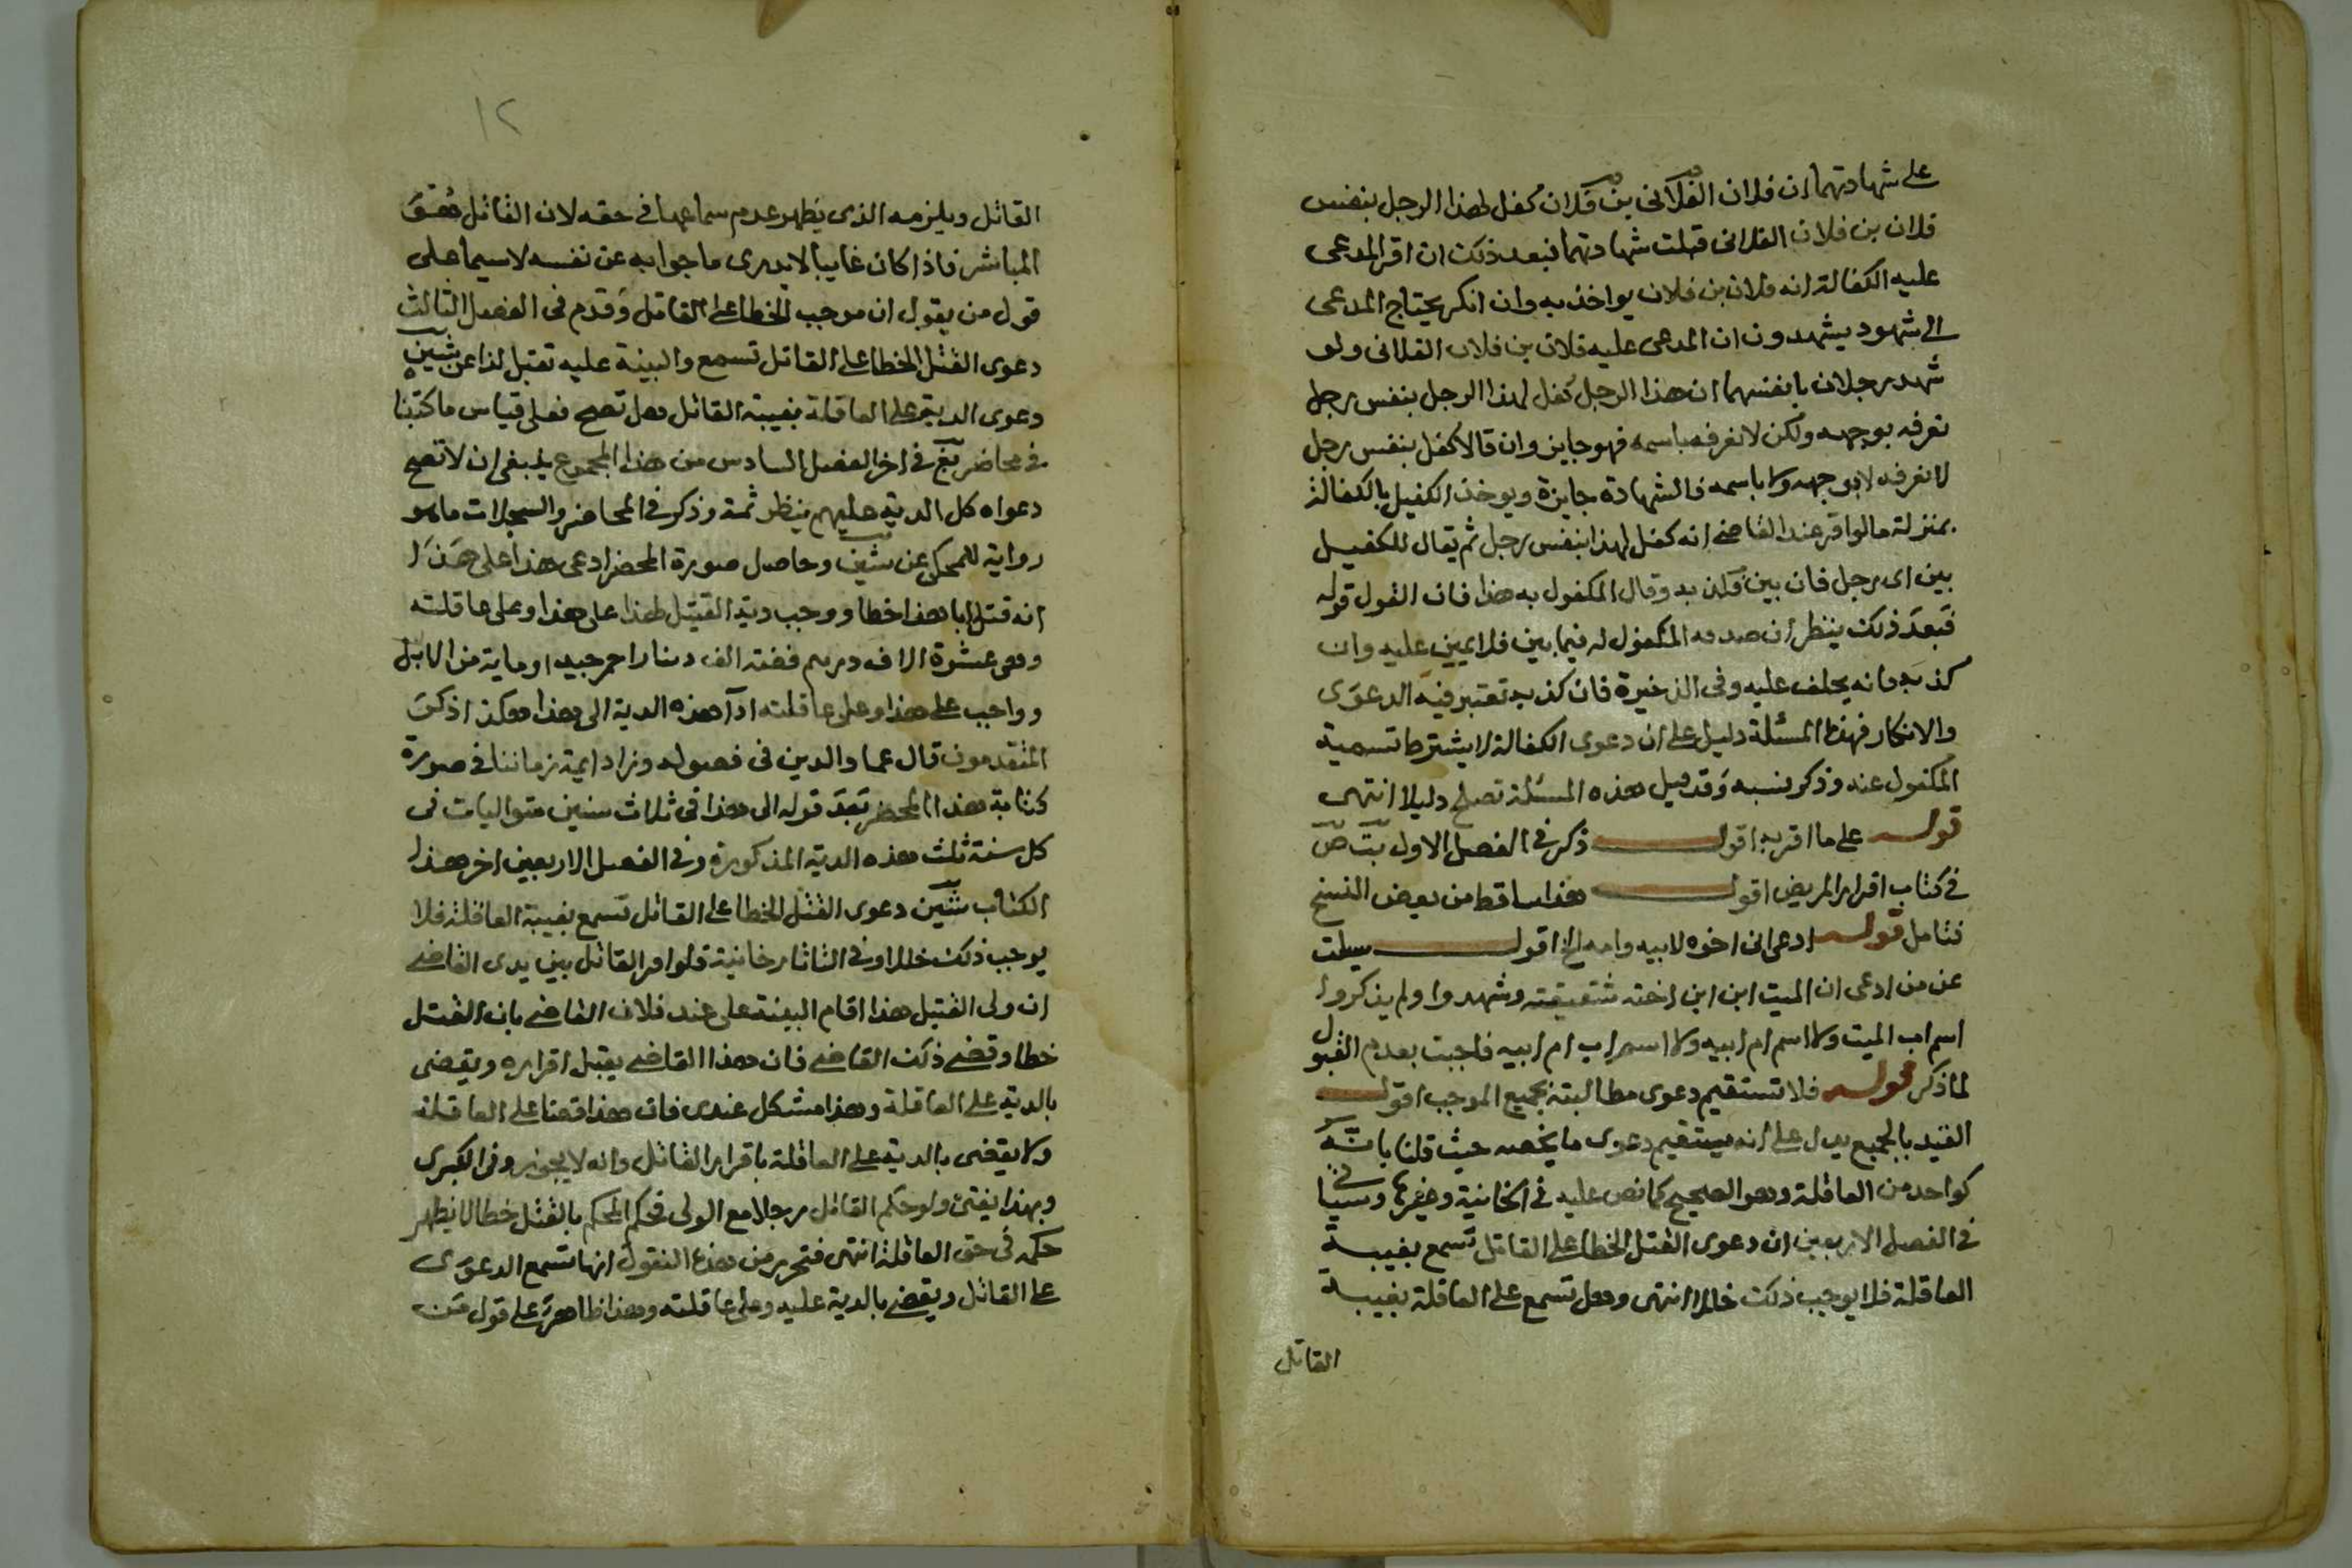 على شهادتهما ان فلان الفلانى بن فلان كفل لهذا الرجل بنفس
فلان بن فلان الفلانى قبلت شهادتهما فبعد ذلك ان اقر المدعى
عليه الكفالة انه فلان بن فلان يواخذ به وان انكر يحتاج المدعى
الى شهود يشهدون ان المدعى عليه فلان بن فلان الفلانى ولو
شهد رجلان بانفسهما ان هذا الرجل كفل لهذا الرجل بنفس رجل
نعرفه بوجهه ولكن لا نعرفه باسمه فهو جايز وان قالا كفل بنفس رجل
لا نعرفه لا بوجهه ولا باسمه فالشهادة جايزة ويوخذ الكفيل بالكفالة
بمنزلة ما لو اقر عند القاضى انه كفل لهذا بنفس رجل ثم يقال للكفيل
بين اى رجل فان بين فلان به وقال المكفول به هذا فان القول قوله
فبعد ذلك ينظر ان صدقه المكفول له فيما بين فلا يمين عليه وان
كذبه فانه يحلف عليه وفى الذخيرة فان كذبه تعتبر فيه الدعوى
والانكار فهذا المسئلة دليل على ان دعوى الكفالة لا يشترط تسمية
المكفول عنه وذكر نسبه وقد قيل هذه المسئلة تصلح دليلا انتهى
قوله على ما اقر به اقول ذكر فى الفصل الاول بت ص
فى كتاب اقرار المريض اقول هذا ساقط من بعض النسخ
فتامل قوله ادعى ان اخوه لابيه وامه الخ اقول سيلت
عن من ادعى ان الميت ابن ابن اخته شقيقته وشهدوا ولم يذكروا
اسم اب الميت ولا اسم ام ابيه ولا اسم اب ام ابيه فاجبت بعدم القبول
لما ذكر قوله فلا تستقيم دعوى مطالبته بجميع الموجب اقول
القيد بالجميع يدل على انه يستقيم دعوى ما يخصه حيث قلنا بانه
كواحد من العاقلة وهو الصحيح كما نص عليه فى الخانية وغيرها وسياتى
فى الفصل الاربعين ان دعوى القتل الخطا على القاتل تسمع بغيبة
العاقلة فلا يوجب ذلك خللا انتهى وهل تسمع على العاقلة بغيبة
القاتل
١٢
القاتل ويلزمه الذى يظهر عدم سماعها فى حقه لان القاتل هو
المباشر فاذا كان غايبا لا يدرى ما جوابه عن نفسه لا سيما على
قول من يقول ان موجب الخطا على القاتل وقدم فى الفصل الثالث
دعوى القتل الخطا على القاتل تسمع والبينة عليه تقبل لذا عن شين
دعوى الدية على العاقلة بغيبة القاتل هل تصح فعلى قياس ما كتبنا
فى محاضر بقع فى اخر الفصل السادس من هذا المجموع ينبغى ان لا تصح
دعواه كل الدية عليهم ينظر ثمة وذكر فى المحاضر والسجلات ما هو
رواية للمحكى عن شين وحاصل صورة المحضر ادعى هذا على هذا
انه قتل ابا هذا خطا ووجب دية القتيل لهذا على هذا وعلى عاقلته
وهى عشرة الاف درهم فضة الف دينار احمر جيد او ماية من الابل
وواجب على هذا وعلى عاقلته ادآ هذه الدية الى هذا هكذا ذكر
المتقدمون قال عماد الدين فى فصوله وزاد ايمة زماننا فى صورة
كتابة هذا المحضر بعد قوله الى هذا فى ثلاث سنين متواليات فى
كل سنة ثلث هذه الدية المذكورة وفى الفصل الاربعين اخر هذا
الكتاب شين دعوى القتل الخطا على القاتل تسمع بغيبة العاقلة فلا
يوجب ذلك خللا وفى التاتارخانية قلوا قر القاتل بين يدى القاضى
ان ولى القتيل هذا اقام البينة على عند فلان القاضى بان القتل
خطا وقضى ذلك القاضى فان هذا القاضى يقبل اقراره ويقضى
بالدية على العاقلة وهذا مشكل عندى فان هذا قضا على العاقلة
ولا يقضى بالدية على العاقلة باقرار القاتل وانه لا يجوز وفى الكبرى
وبهذا يفتى ولو حكم القاتل رجلا مع الولى فحكم المحكم بالقتل خطا لا يظهر
حكمه فى حق العاقلة انتهى فتحرر من هذه النقول انها تسمع الدعوى
على القاتل ويقضى بالدية عليه وعلى عاقلته وهذا ظاهر على قول من